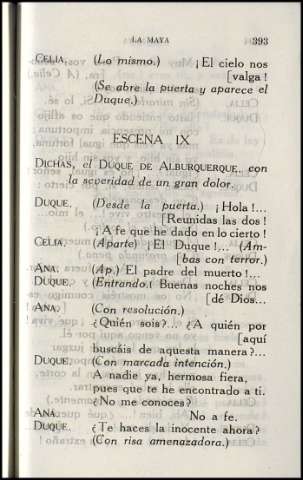 LA MAYA 393
CELIA. (Lo mismo.) ¡El cielo nos
[valga!
(Se abre la puerta y aparece el
Duque.)
ESCENA IX
DICHAS, el DUQUE DE ALBURQUERQUE, con
la severidad de un gran dolor.
DUQUE. (Desde la puerta.) ¡Hola!...
[Reunidas las dos!
¡A fe que he dado en lo cierto!
CELIA. (Aparte) ¡El Duque!... (Am-
[bas con terror.)
ANA. (Ap.) El padre del muerto!...
DUQUE. (Entrando.) Buenas noches nos
[dé Dios...
ANA. (Con resolución.)
¿Quién sois?... ¿A quién por
[aquí
buscáis de aquesta manera?...
DUQUE. (Con marcada intención.)
A nadie ya, hermosa fiera,
pues que te he encontrado a ti.
¿No me conoces?
ANA. No a fe.
DUQUE. ¿Te haces la inocente ahora?
(Con risa amenazadora.)